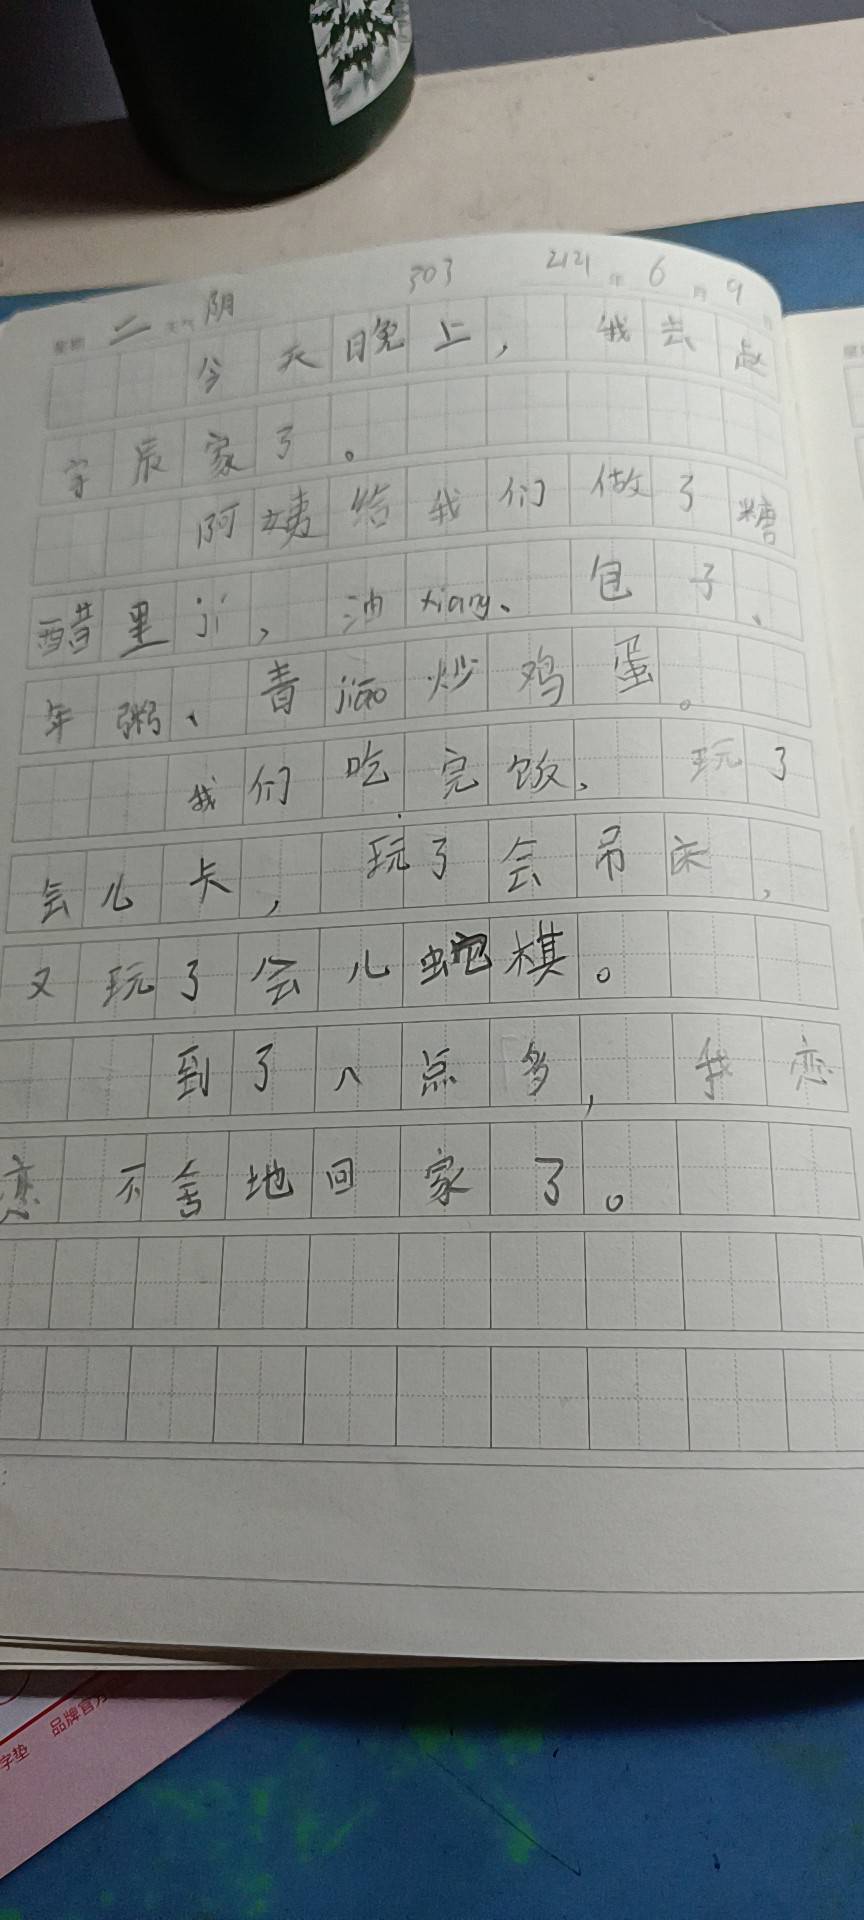 303 2121年6月9日
星期二 天气阴
今天晚上，我去赵
宇辰家了。
阿姨给我们做了糖
醋里jí，油xiang、包子、
年粥、青jiao炒鸡蛋。
我们吃完饭，玩了
会儿卡，玩了会吊床，
又玩了会儿蛇棋。
到了八点多，我恋
恋不舍地回家了。
品牌官方
字垫